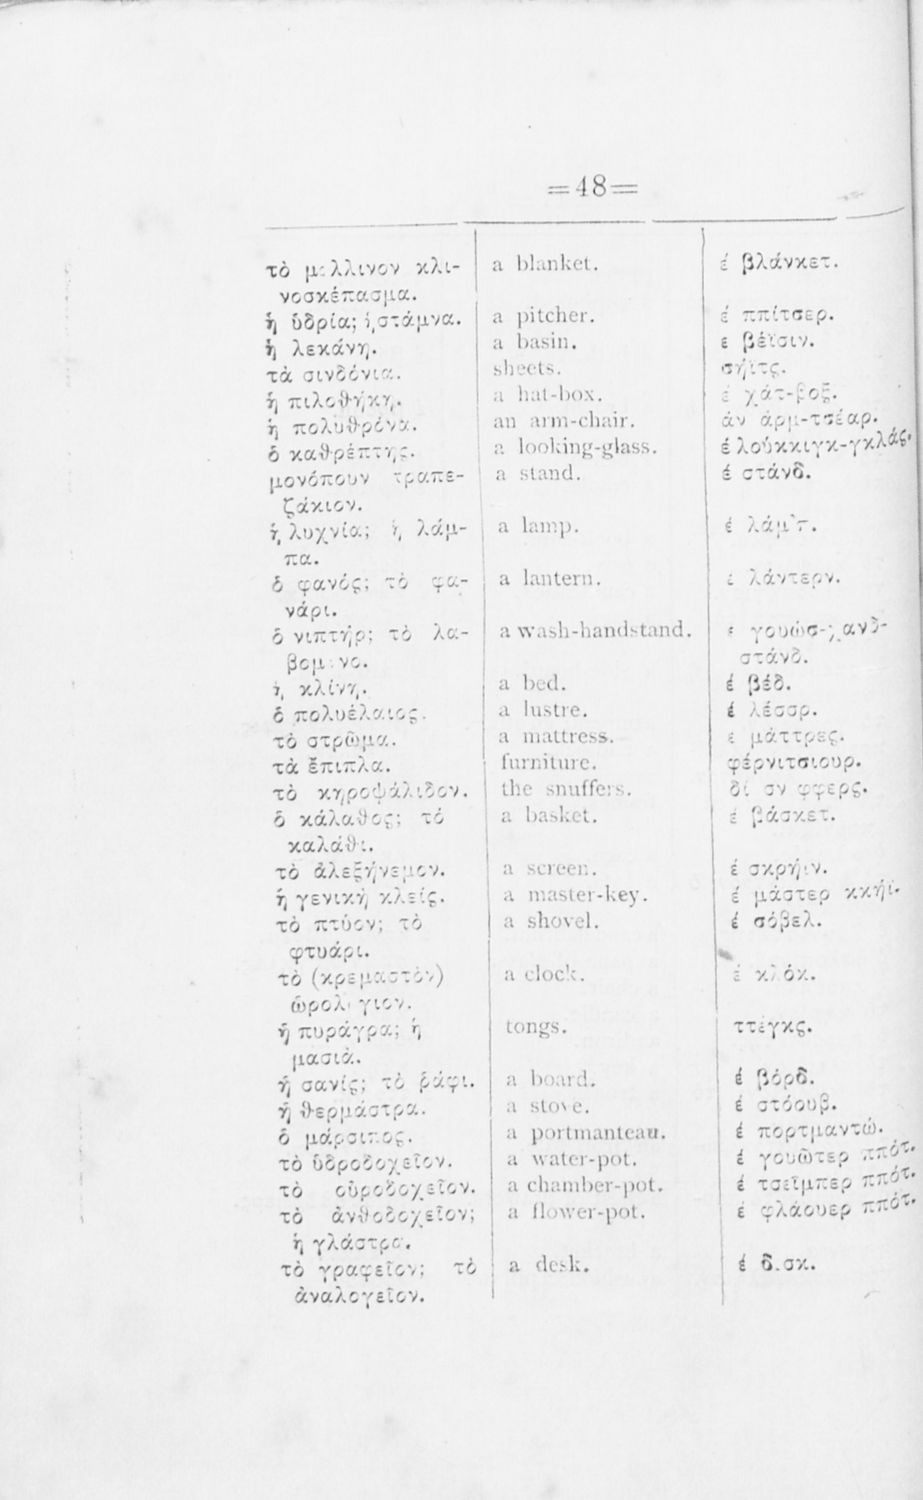 =48=
τὸ μάλλινον κλι- a blanket. ἐ βλάνκετ.
νοσκέπασμα.
ἡ ὑδρία; ἡ στάμνα. a pitcher. ἐ ππίτσερ.
ἡ λεκάνη. a basin. ε βέϊσιν.
τὰ σινδόνια. sheets. σήϊτς.
ἡ πιλοθήκη. a hat-box. ἐ χάτ-βοξ.
ἡ πολυθρόνα. an arm-chair. ἀν ἀρμ-τσέαρ.
ὁ καθρέπτης. a looking-glass. ἐ λούκκιγκ-γκλάς.
μονόπουν τραπε- a stand. ἐ στάνδ.
ζάκιον.
ἡ λυχνία; ἡ λάμ- a lamp. ἐ λάμπ.
πα.
ὁ φανός; τὸ φα- a lantern. ἐ λάντερν.
νάρι.
ὁ νιπτήρ; τὸ λα- a wash-handstand. ε γουώσ-χανδ-
βομάνο. στάνδ.
ἡ κλίνη. a bed. ἐ βέδ.
ὁ πολυέλαιος. a lustre. ἐ λέσσρ.
τὸ στρῶμα. a mattress. ε μάττρες.
τὰ ἔπιπλα. furniture. φέρνιτσιουρ.
τὸ κηροψάλιδον. the snuffers. δὶ σν φφερς.
ὁ κάλαθος; τό a basket. ἐ βάσκετ.
καλάθι.
τὸ ἀλεξήνεμον. a screen. ἐ σκρήϊν.
ἡ γενικὴ κλείς. a master-key. ἐ μάστερ κκήϊ.
τὸ πτύον; τὸ a shovel. ἐ σόβελ.
φτυάρι.
τὸ (κρεμαστὸν) a clock. ἐ κλόκ.
ὡρολόγιον.
ἡ πυράγρα; ἡ tongs. ττέγκς.
μασιὰ.
ἡ σανίς; τὸ ῥάφι. a board. ἐ βόρδ.
ἡ θερμάστρα. a stove. ἐ στόουβ.
ὁ μάρσιπος. a portmanteau. ἐ πορτμαντώ.
τὸ ὑδροδοχεῖον. a water-pot. ἐ γουῶτερ ππότ.
τὸ οὐροδοχεῖον. a chamber-pot. ἐ τσεῖμπερ ππότ.
τὸ ἀνθοδοχεῖον; a flower-pot. ἐ φλάουερ ππότ.
ἡ γλάστρα.
τὸ γραφεῖον; τὸ a desk. ἐ δέσκ.
ἀναλογεῖον.